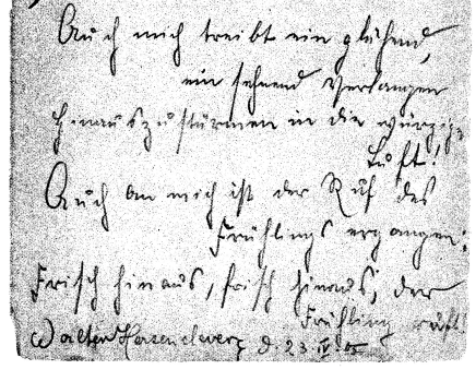 Auch mich treibt ein glühend,
ein sehnend Verlangen
Hinauszustürmen in die würzige
Luft!
Auch an mich ist der Ruf des
Frühlings ergangen:
Frisch hinaus, frisch hinaus, der
Frühling ruft!
Walter d. 23. IV. 15